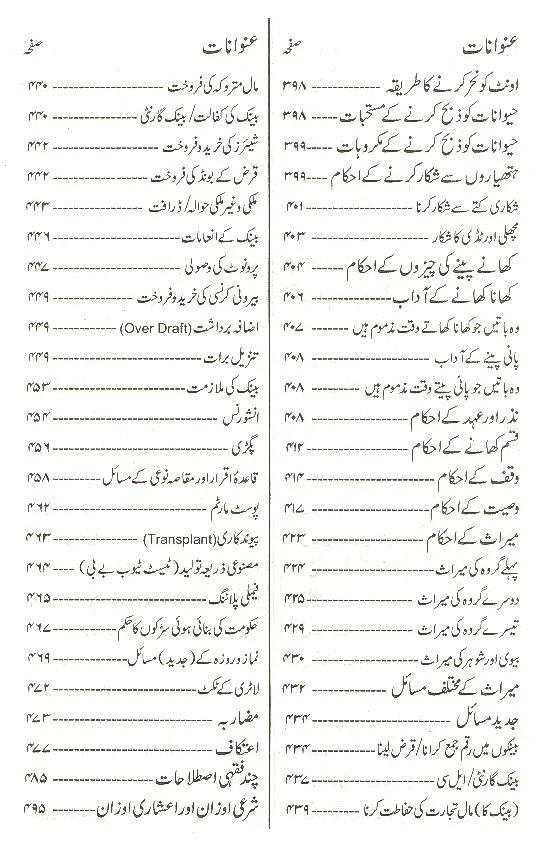 عنوانات صفحہ
اونٹ کو نحر کرنے کا طریقہ ۳۹۸
حیوانات کو ذبح کرنے کے مستحبات ۳۹۸
حیوانات کو ذبح کرنے کے مکروہات ۳۹۹
ہتھیاروں سے شکار کرنے کے احکام ۳۹۹
شکاری کتے سے شکار کرنا ۴۰۱
مچھلی اور ٹڈی کا شکار ۴۰۳
کھانے پینے کی چیزوں کے احکام ۴۰۴
کھانا کھانے کے آداب ۴۰۶
وہ باتیں جو کھانا کھاتے وقت مذموم ہیں ۴۰۷
پانی پینے کے آداب ۴۰۸
وہ باتیں جو پانی پیتے وقت مذموم ہیں ۴۰۸
نذر اور عہد کے احکام ۴۰۸
قسم کھانے کے احکام ۴۱۲
وقف کے احکام ۴۱۴
وصیت کے احکام ۴۱۷
میراث کے احکام ۴۲۳
پہلے گروہ کی میراث ۴۲۴
دوسرے گروہ کی میراث ۴۲۵
تیسرے گروہ کی میراث ۴۲۹
بیوی اور شوہر کی میراث ۴۳۰
میراث کے مختلف مسائل ۴۳۲
جدید مسائل ۴۳۴
بینکوں میں رقم جمع کرانا/قرض لینا ۴۳۴
بینک گارنٹی/ایل سی ۴۳۷
(بینک کا) مال تجارت کی حفاظت کرنا ۴۳۹
عنوانات صفحہ
مال متروکہ کی فروخت ۴۴۰
بینک کی کفالت/بینک گارنٹی ۴۴۰
شیئرز کی خرید و فروخت ۴۴۲
قرض کے بونڈ کی فروخت ۴۴۲
ملکی و غیر ملکی حوالہ/ڈرافت ۴۴۳
بینک کے انعامات ۴۴۶
پرونوٹ کی وصولی ۴۴۷
بیرونی کرنسی کی خرید و فروخت ۴۴۹
اضافہ برداشت (Over Draft) ۴۴۹
تنزیل برات ۴۴۹
بینک کی ملازمت ۴۵۳
انشورنس ۴۵۴
پگڑی ۴۵۶
قاعدۂ اقرار اور مقاصہ نوعی کے مسائل ۴۵۸
پوسٹ مارٹم ۴۶۲
پیوندکاری (Transplant) ۴۶۳
مصنوعی ذریعہ تولید (ٹیسٹ ٹیوب بے بی) ۴۶۴
فیملی پلاننگ ۴۶۵
حکومت کی بنائی ہوئی سڑکوں کا حکم ۴۶۷
نماز و روزہ کے (جدید) مسائل ۴۶۹
لاٹری کے ٹکٹ ۴۷۲
مضاربہ ۴۷۳
اعتکاف ۴۷۷
چند فقہی اصطلاحات ۴۸۵
شرعی اوزان اور اعشاری اوزان ۴۹۵